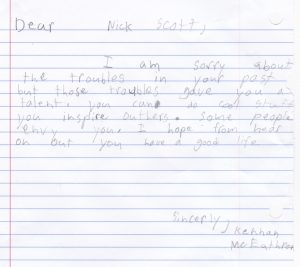 Dear Nick Scott,
I am sorry about
the troubles in your past
but those troubles gave you a
talent. you can do cool stuff
you inspire outhers. Some people
envy you. I hope from hear
on out you have a good life
Sincerly,
Keenan